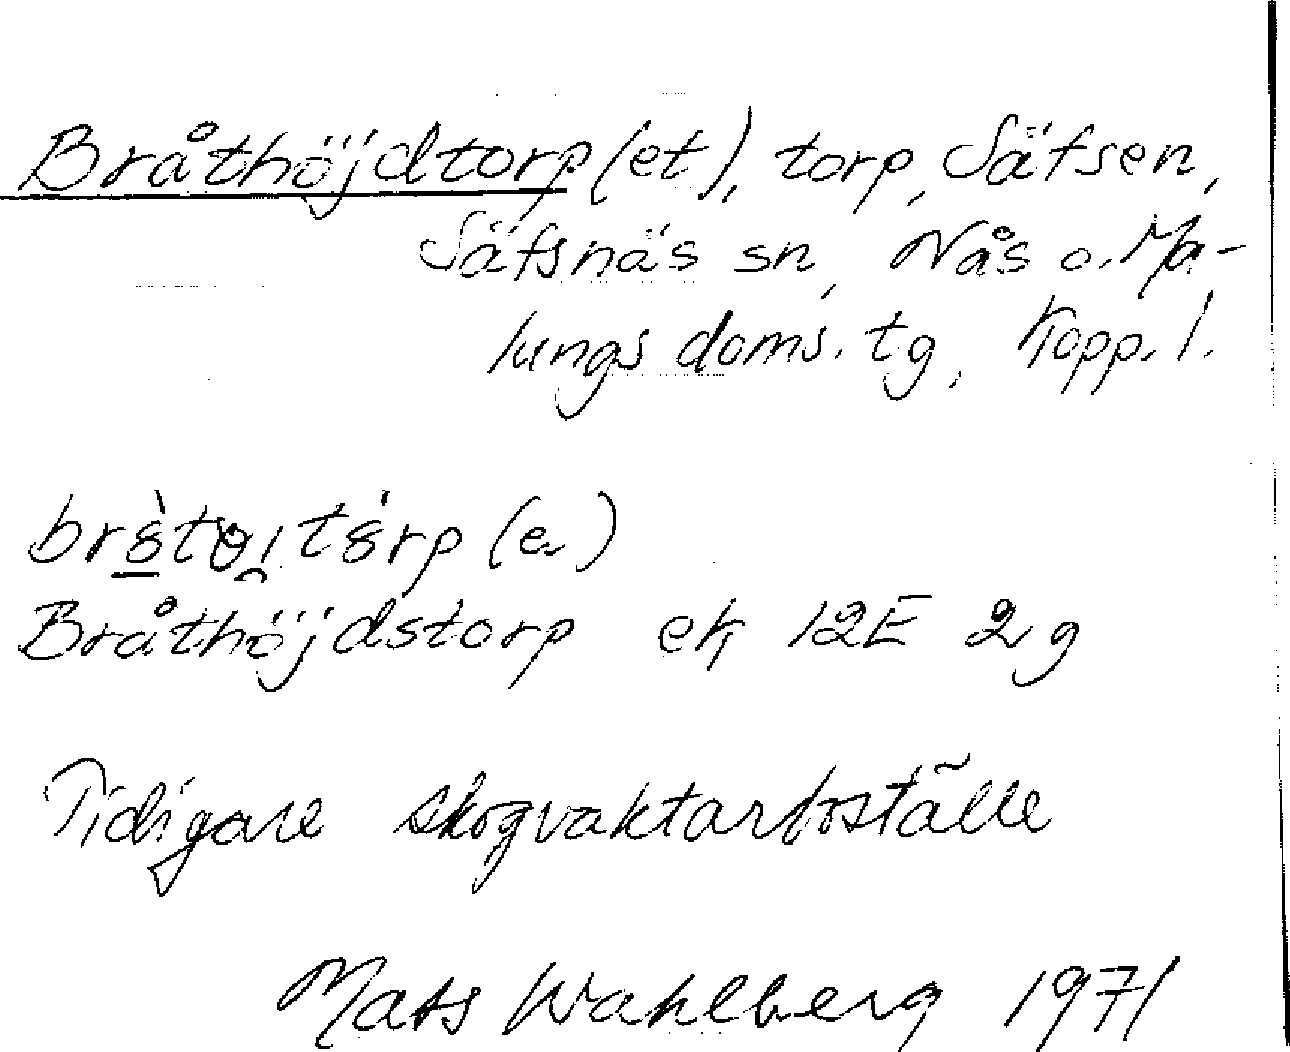 Bråthöjdtorp(et), torp, Säfsen,
Säfsnäs sn, Nås o. Ma-
lungs doms. tg, Kopp. l.
(e)
Bråthöjdstorp ek 12E 2g
Tidigare skogvaktarboställe
Mats Wahlberg 1971